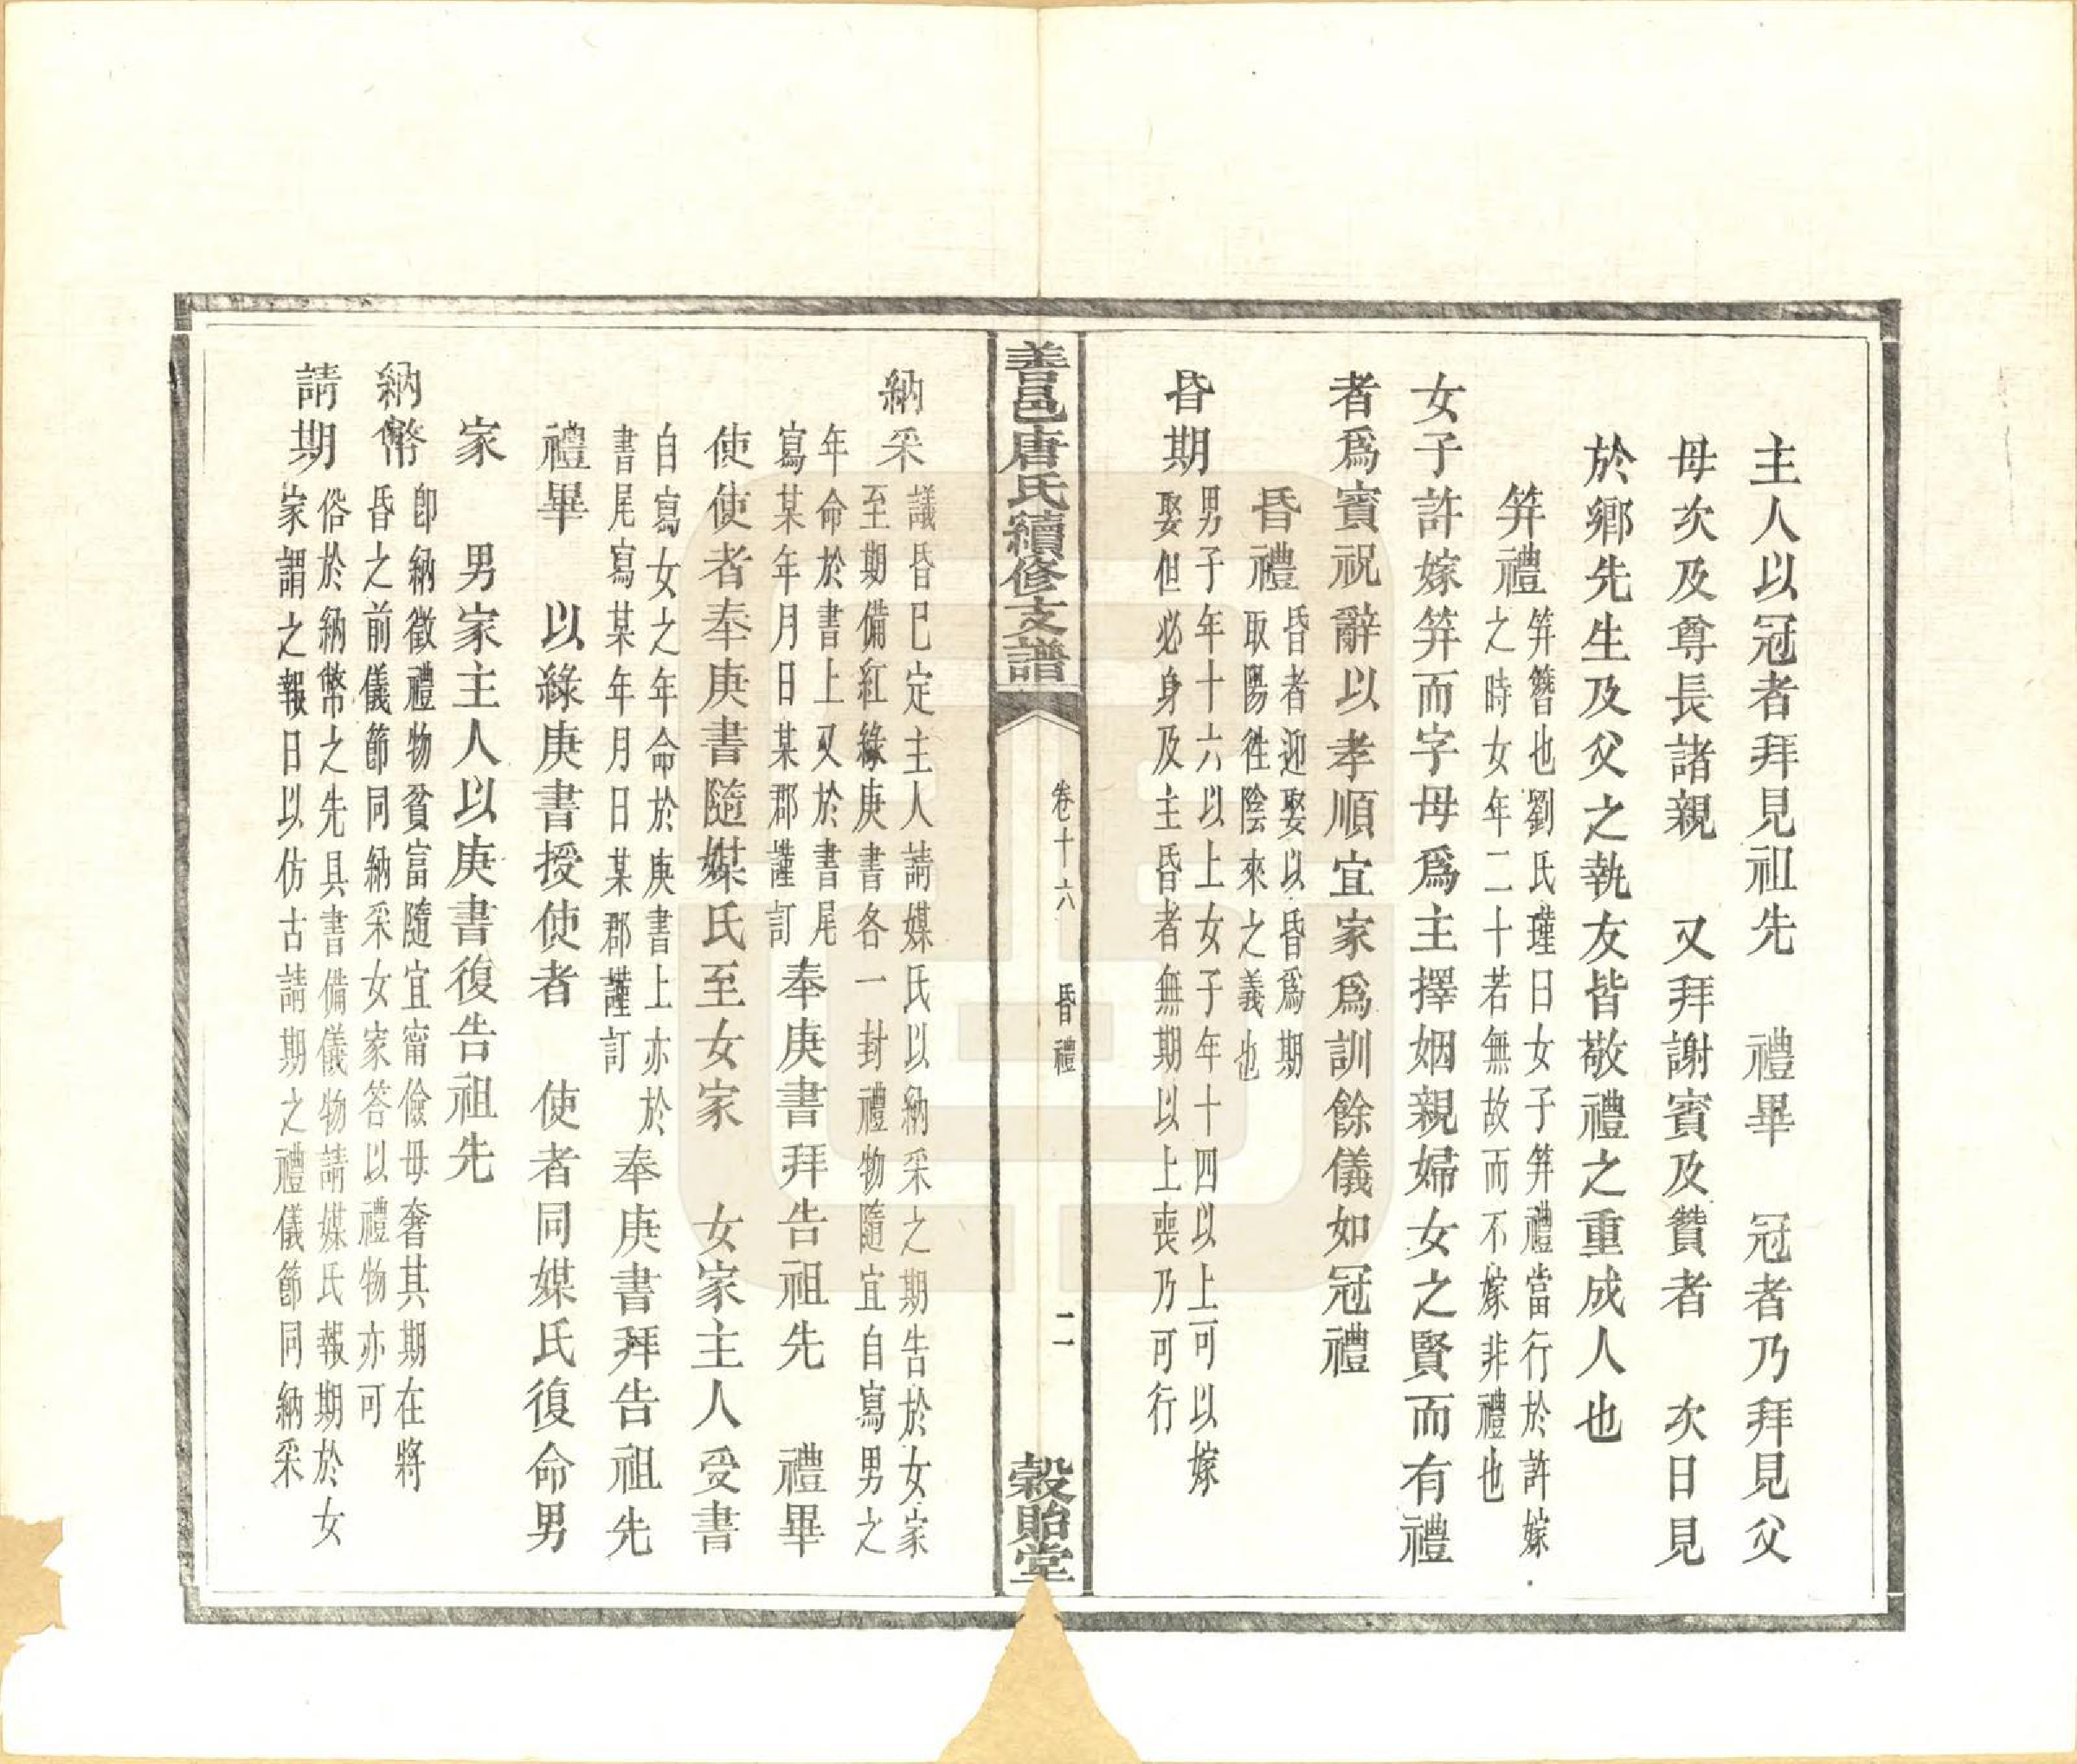 主人以冠者拜見祖先　禮畢　冠者乃拜見父
母次及尊長諸親　又拜謝賓及贊者　次日見
於鄉先生及父之執友皆敬禮之重成人也
笄禮
笄簪也劉氏瑾曰女子笄禮當行於許嫁
之時女年二十若無故而不嫁非禮也
女子許嫁笄而字母爲主擇姻親婦女之賢而有禮
者爲賓祝辭以孝順宜家爲訓餘儀如冠禮
昏禮
昏者迎娶以昏爲期
取陽徃陰來之義也
昏期
男子年十六以上女子年十四以上可以嫁
娶但必身及主昏者無期以上喪乃可行
善邑唐氏續修支譜
卷十六
昏禮
二
穀貽堂
納采
議昏已定主人請媒氏以納采之期告於女家
至期備紅綠庚書各一封禮物隨宜自寫男之
年命於書上又於書尾
寫某年月日某郡謹訂
奉庚書拜告祖先　禮畢
使使者奉庚書隨媒氏至女家　女家主人受書
自寫女之年命於庚書上亦於
書尾寫某年月日某郡謹訂
奉庚書拜告祖先
禮畢　以綠庚書授使者　使者同媒氏復命男
家　男家主人以庚書復告祖先
納幣
卽納徵禮物貧富隨宜甯儉毋奢其期在將
昏之前儀節同納采女家答以禮物亦可
請期
俗於納幣之先具書備儀物請媒氏報期於女
家謂之報日以仿古請期之禮儀節同納采